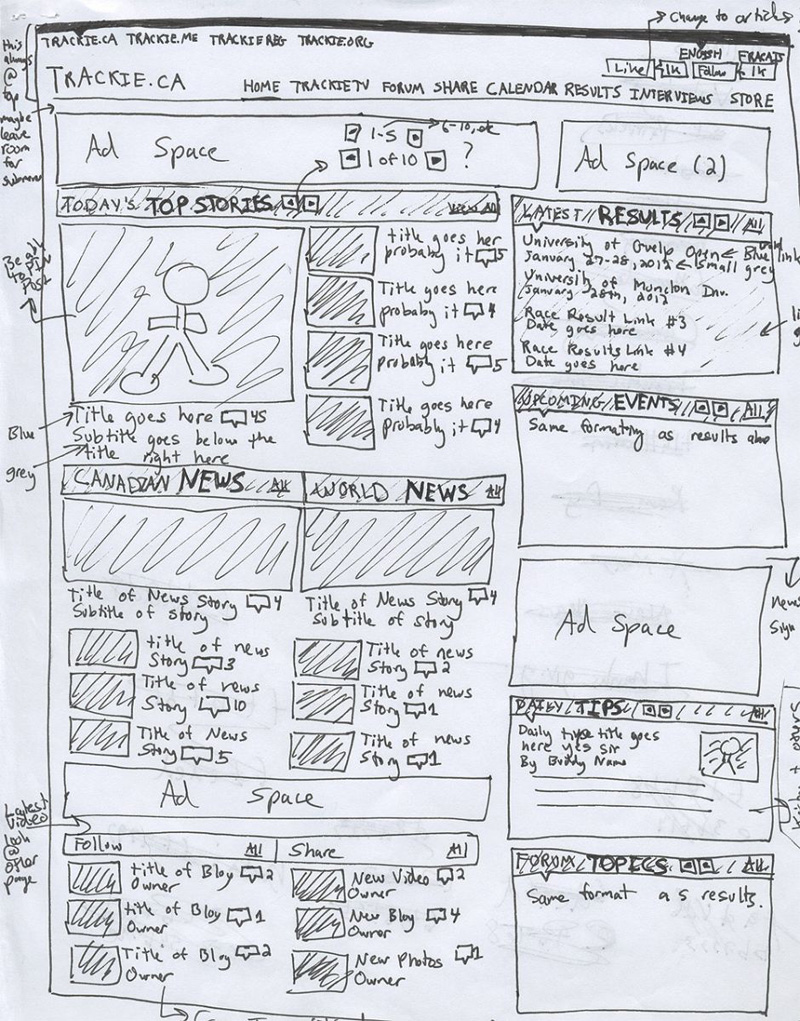 change to articles
this always @ top maybe leave room for submenu
TRACKIE.CA TRACKIE.ME TRACKIEREG TRACKIE.ORG
ENGLISH FRACAIS
Like 1k Follow 1k
TRACKIE.CA
HOME TRACKIETV FORUM SHARE CALENDAR RESULTS INTERVIEWS STORE
Ad Space
1-5 6-10, etc
1 of 10 ?
Ad Space (2)
TODAY'S TOP STORIES View All
title goes her
probably it 5
Title goes here
probably it 4
Title goes here
probably it 5
Title goes here
probably it 4
Title goes here 45
Subtitle goes below the
title right here
Blue
grey
LATEST RESULTS All
University of Guelp Open ← Blue link
January 27-28, 2012 ← small grey
University of Muncton Inv.
January 28th, 2012
Race Result Link #3
Date goes here
Race Results Link #4
Date goes here
UPCOMING EVENTS All
Same formating as results above
CANADIAN NEWS All
Title of News Story 4
Subtitle of story
title of news
Story 3
Title of news
Story 10
Title of News
Story 5
WORLD NEWS All
Title of News Story 4
Subtitle of story
Title of news
Story 2
Title of news
Story 1
Title of news
Story 1
Ad Space
Sign
DAILY TIPS All
Daily type title goes
here yes sir
By Buddy Name
Ad Space
Latest Video look @ other page
Follow All
title of Blog 2
Owner
title of Blog 1
Owner
Title of Blog 2
Owner
Share All
New Video 2
Owner
New Blog 4
Owner
New Photos 1
Owner
FORUM TOPICS All
Same format as results.